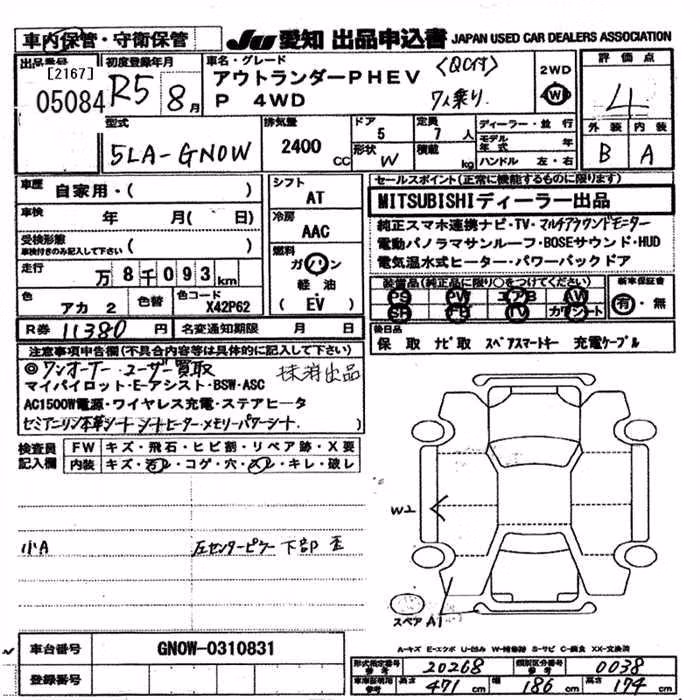 車内保管・守衛保管
JU 愛知 出品申込書 JAPAN USED CAR DEALERS ASSOCIATION
出品番号 [2167] 05084
初度登録年月 R5 8月
車名・グレード アウトランダーPHEV 〈QC付〉
P 4WD 7人乗り
2WD 4W
評価点 4
外装 B 内装 A
型式 5LA-GN0W
排気量 2400 CC
ドア 5 定員 7 人
形状 W 積載 kg
ディーラー・並行
モデル年式 年
ハンドル 左・右
車歴 自家用・( )
車検 年 月( 日)
受検形態 車検付きのみ記入して下さい ( )
走行 万 8千093 km
色 アカ 2 色替 色コード X42P62
R券 11380 円 名変通知期限 月 日
シフト AT
冷房 AAC
燃料 ガソリン
軽油
( EV )
セールスポイント(正常に機能するものに限ります)
MITSUBISHIディーラー出品
純正スマホ連携ナビ・TV・マルチアラウンドモニター
電動パノラマサンルーフ・BOSEサウンド・HUD
電気温水式ヒーター・パワーバックドア
装備品(純正品に限り○をつけてください) 新車保証書
PS PW エアB AW 有・無
SR TV カワシート
後日品
保 取 ナビ取 スペアスマートキー 充電ケーブル
注意事項申告欄(不具合内容等は具体的に記入して下さい)
◎ワンオーナー・ユーザー買取 抹消出品
マイパイロット・E-アシスト・BSW・ASC
AC1500W電源・ワイヤレス充電・ステアヒータ
セミアニリン本革シート シートヒーター・メモリーパワーシート
検査員記入欄
FW キズ・飛石・ヒビ割・リペア跡・X要
内装 キズ・汚レ・コゲ・穴・スレ・キレ・破レ
小A 左センターピラー下部 歪
W2
スペア A1
A-キズ E-エクボ U-凹み W-補修跡 S-サビ C-腐食 XX-交換済
車台番号 GN0W-0310831
登録番号
形式指定番号 参考 20268 類別区分番号 参考 0038
車庫証明用 参考 長さ 471 cm 幅 186 cm 高さ 174 cm